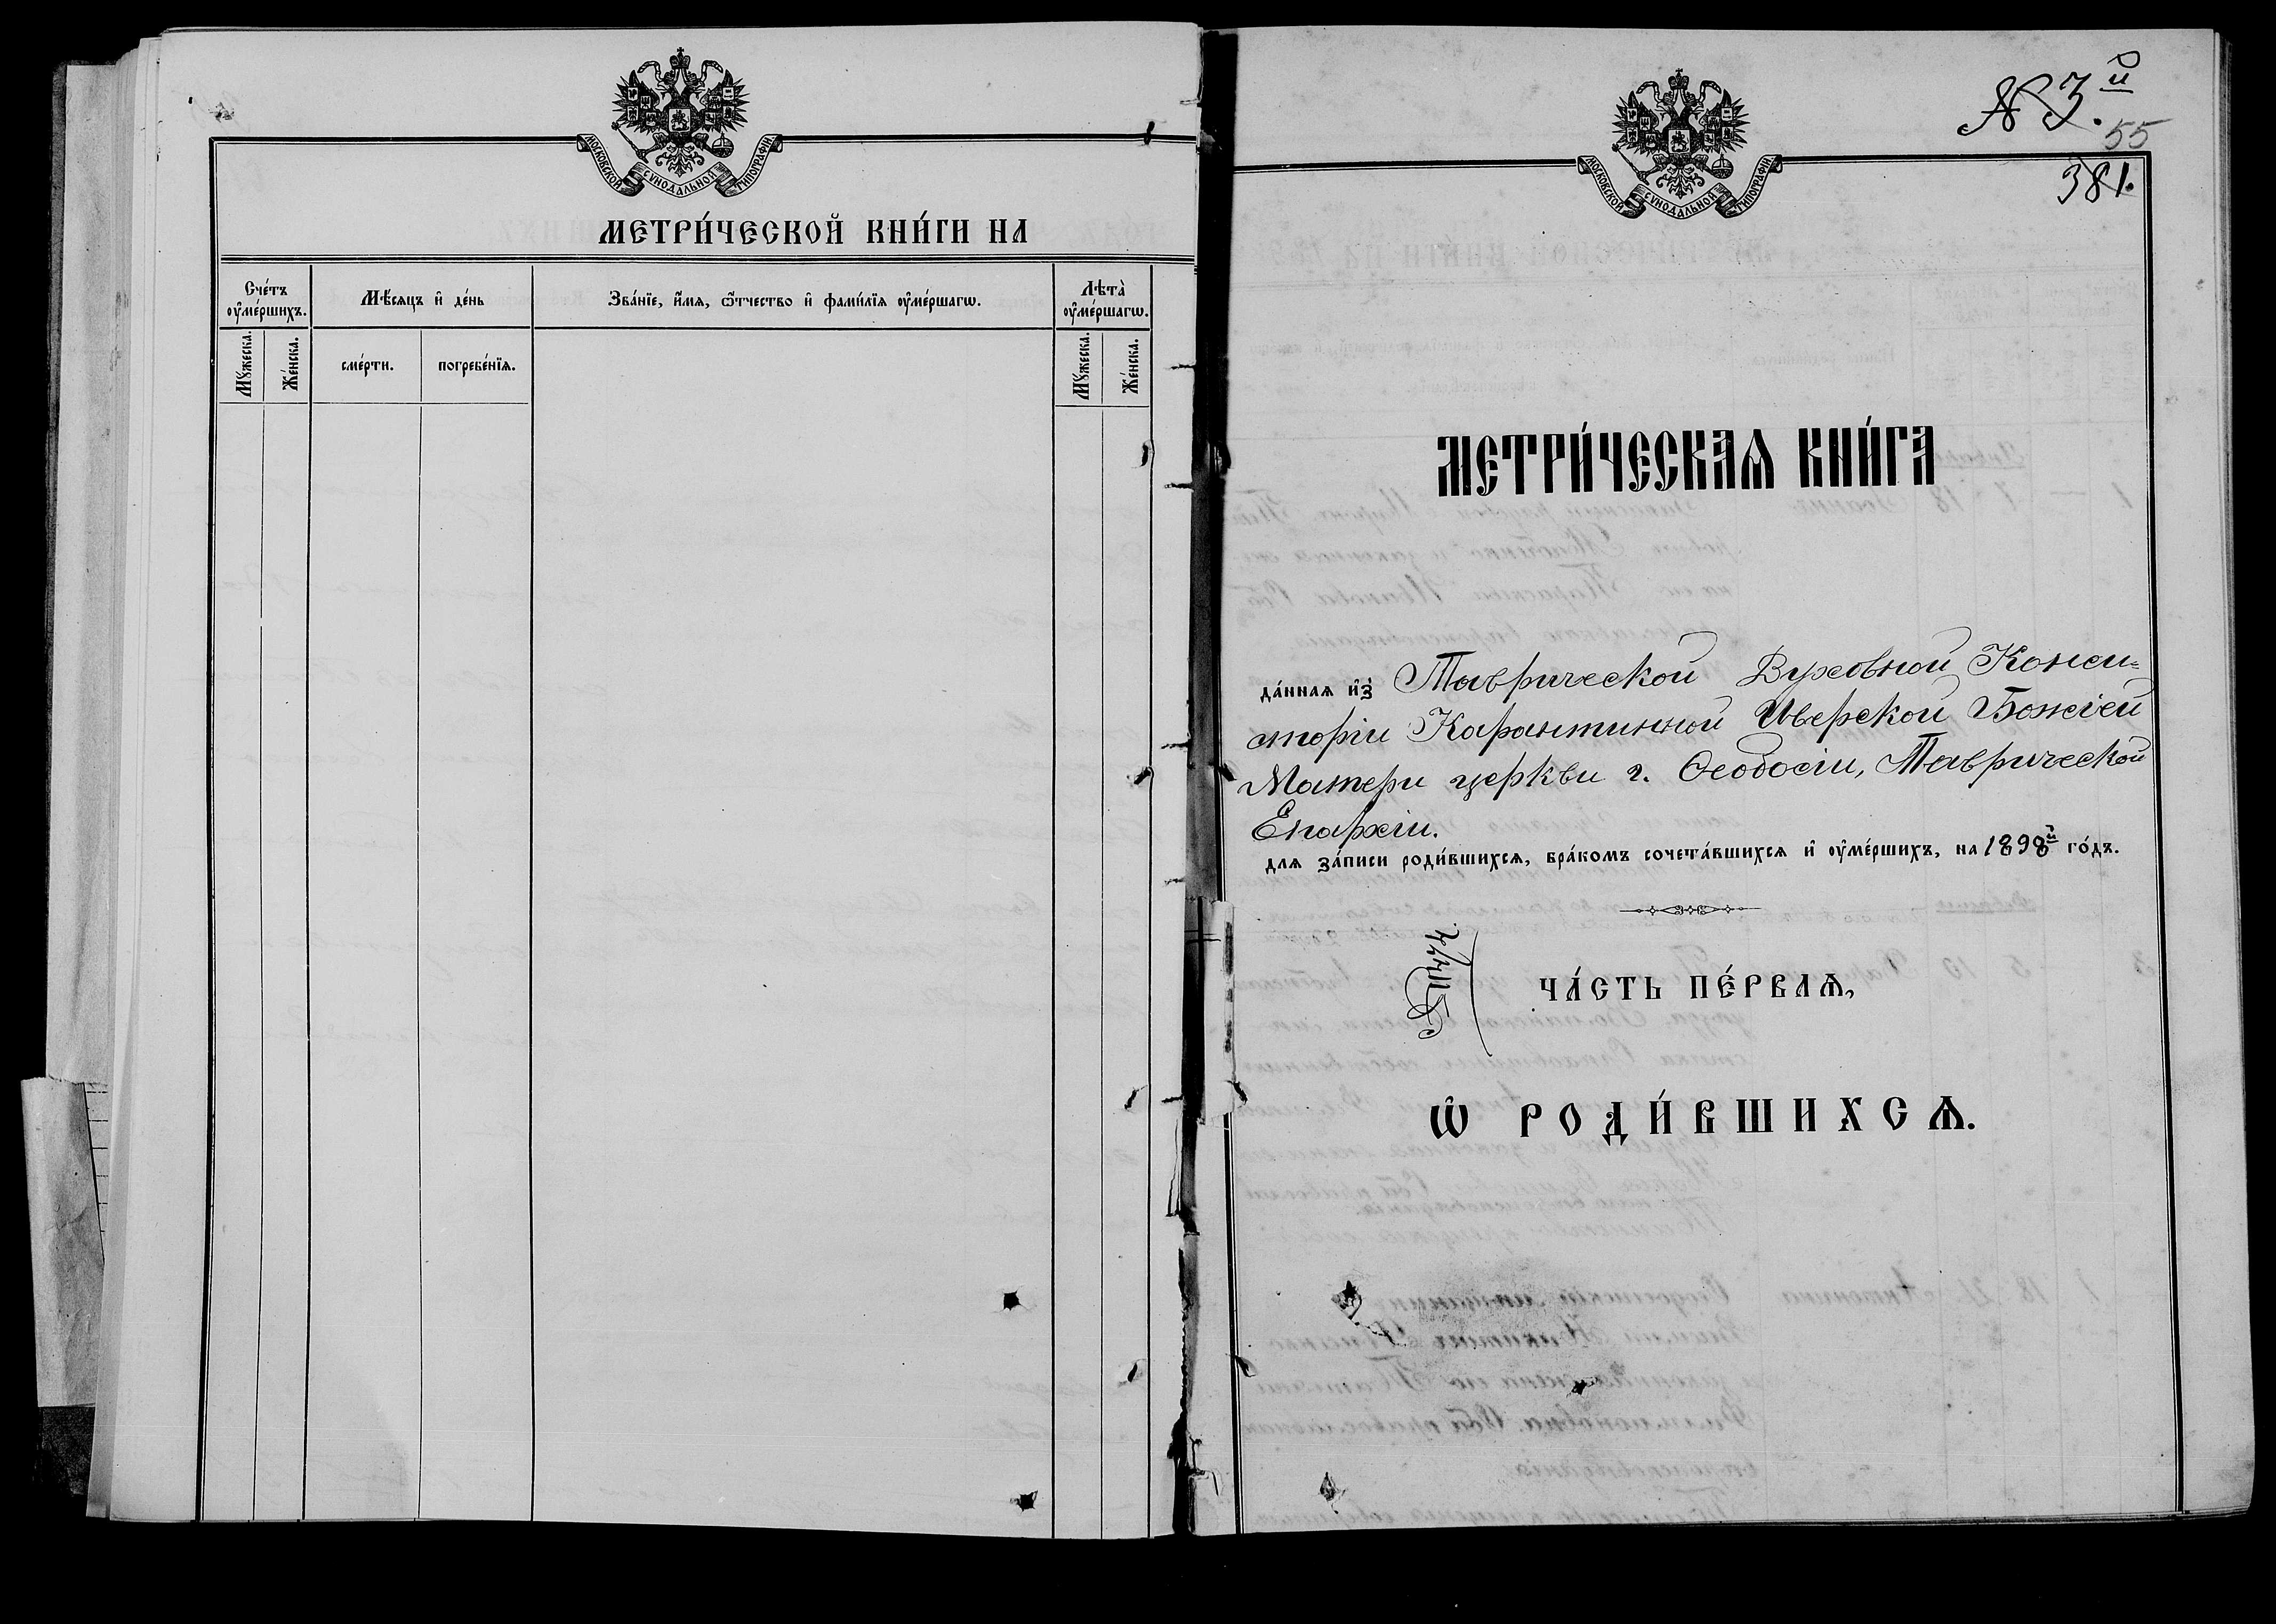 МОСКОВСКОЙ СѴНОДАЛЬНОЙ ТИПОГРАФІИ
МЕТРИ́ЧЕСКОЙ КНИ́ГИ НА
Сче́тъ ᲂу҆ме́ршихъ.
Мѣ́сяцъ и҆ де́нь
Зва́нїе, и҆́мя, ѻ҆́тчество и҆ фами́лїя ᲂу҆ме́ршагѡ.
Лѣта̀ ᲂу҆ме́ршагѡ.
Мꙋ́жеска.
Же́нска.
сме́рти.
погребе́нїя.
Мꙋ́жеска.
Же́нска.
№ 3.й
55
381.
МОСКОВСКОЙ СѴНОДАЛЬНОЙ ТИПОГРАФІИ
МЕТРИ́ЧЕСКАѦ КНИ́ГА
да́нная и҆з̾ Таврической Духовной Конси=
сторіи Карантинной Иверской Божіей
Матери церкви г. Ѳеодосіи, Таврической
Епархіи.
для за́писи роди́вшихся, бра́комъ сочета́вшихся и҆ ᲂу҆ме́ршихъ, на 1898й го́дъ.
ЧА́СТЬ ПЕ́РВАѦ,
Ѡ҆ РОДИ́ВШИХСѦ.